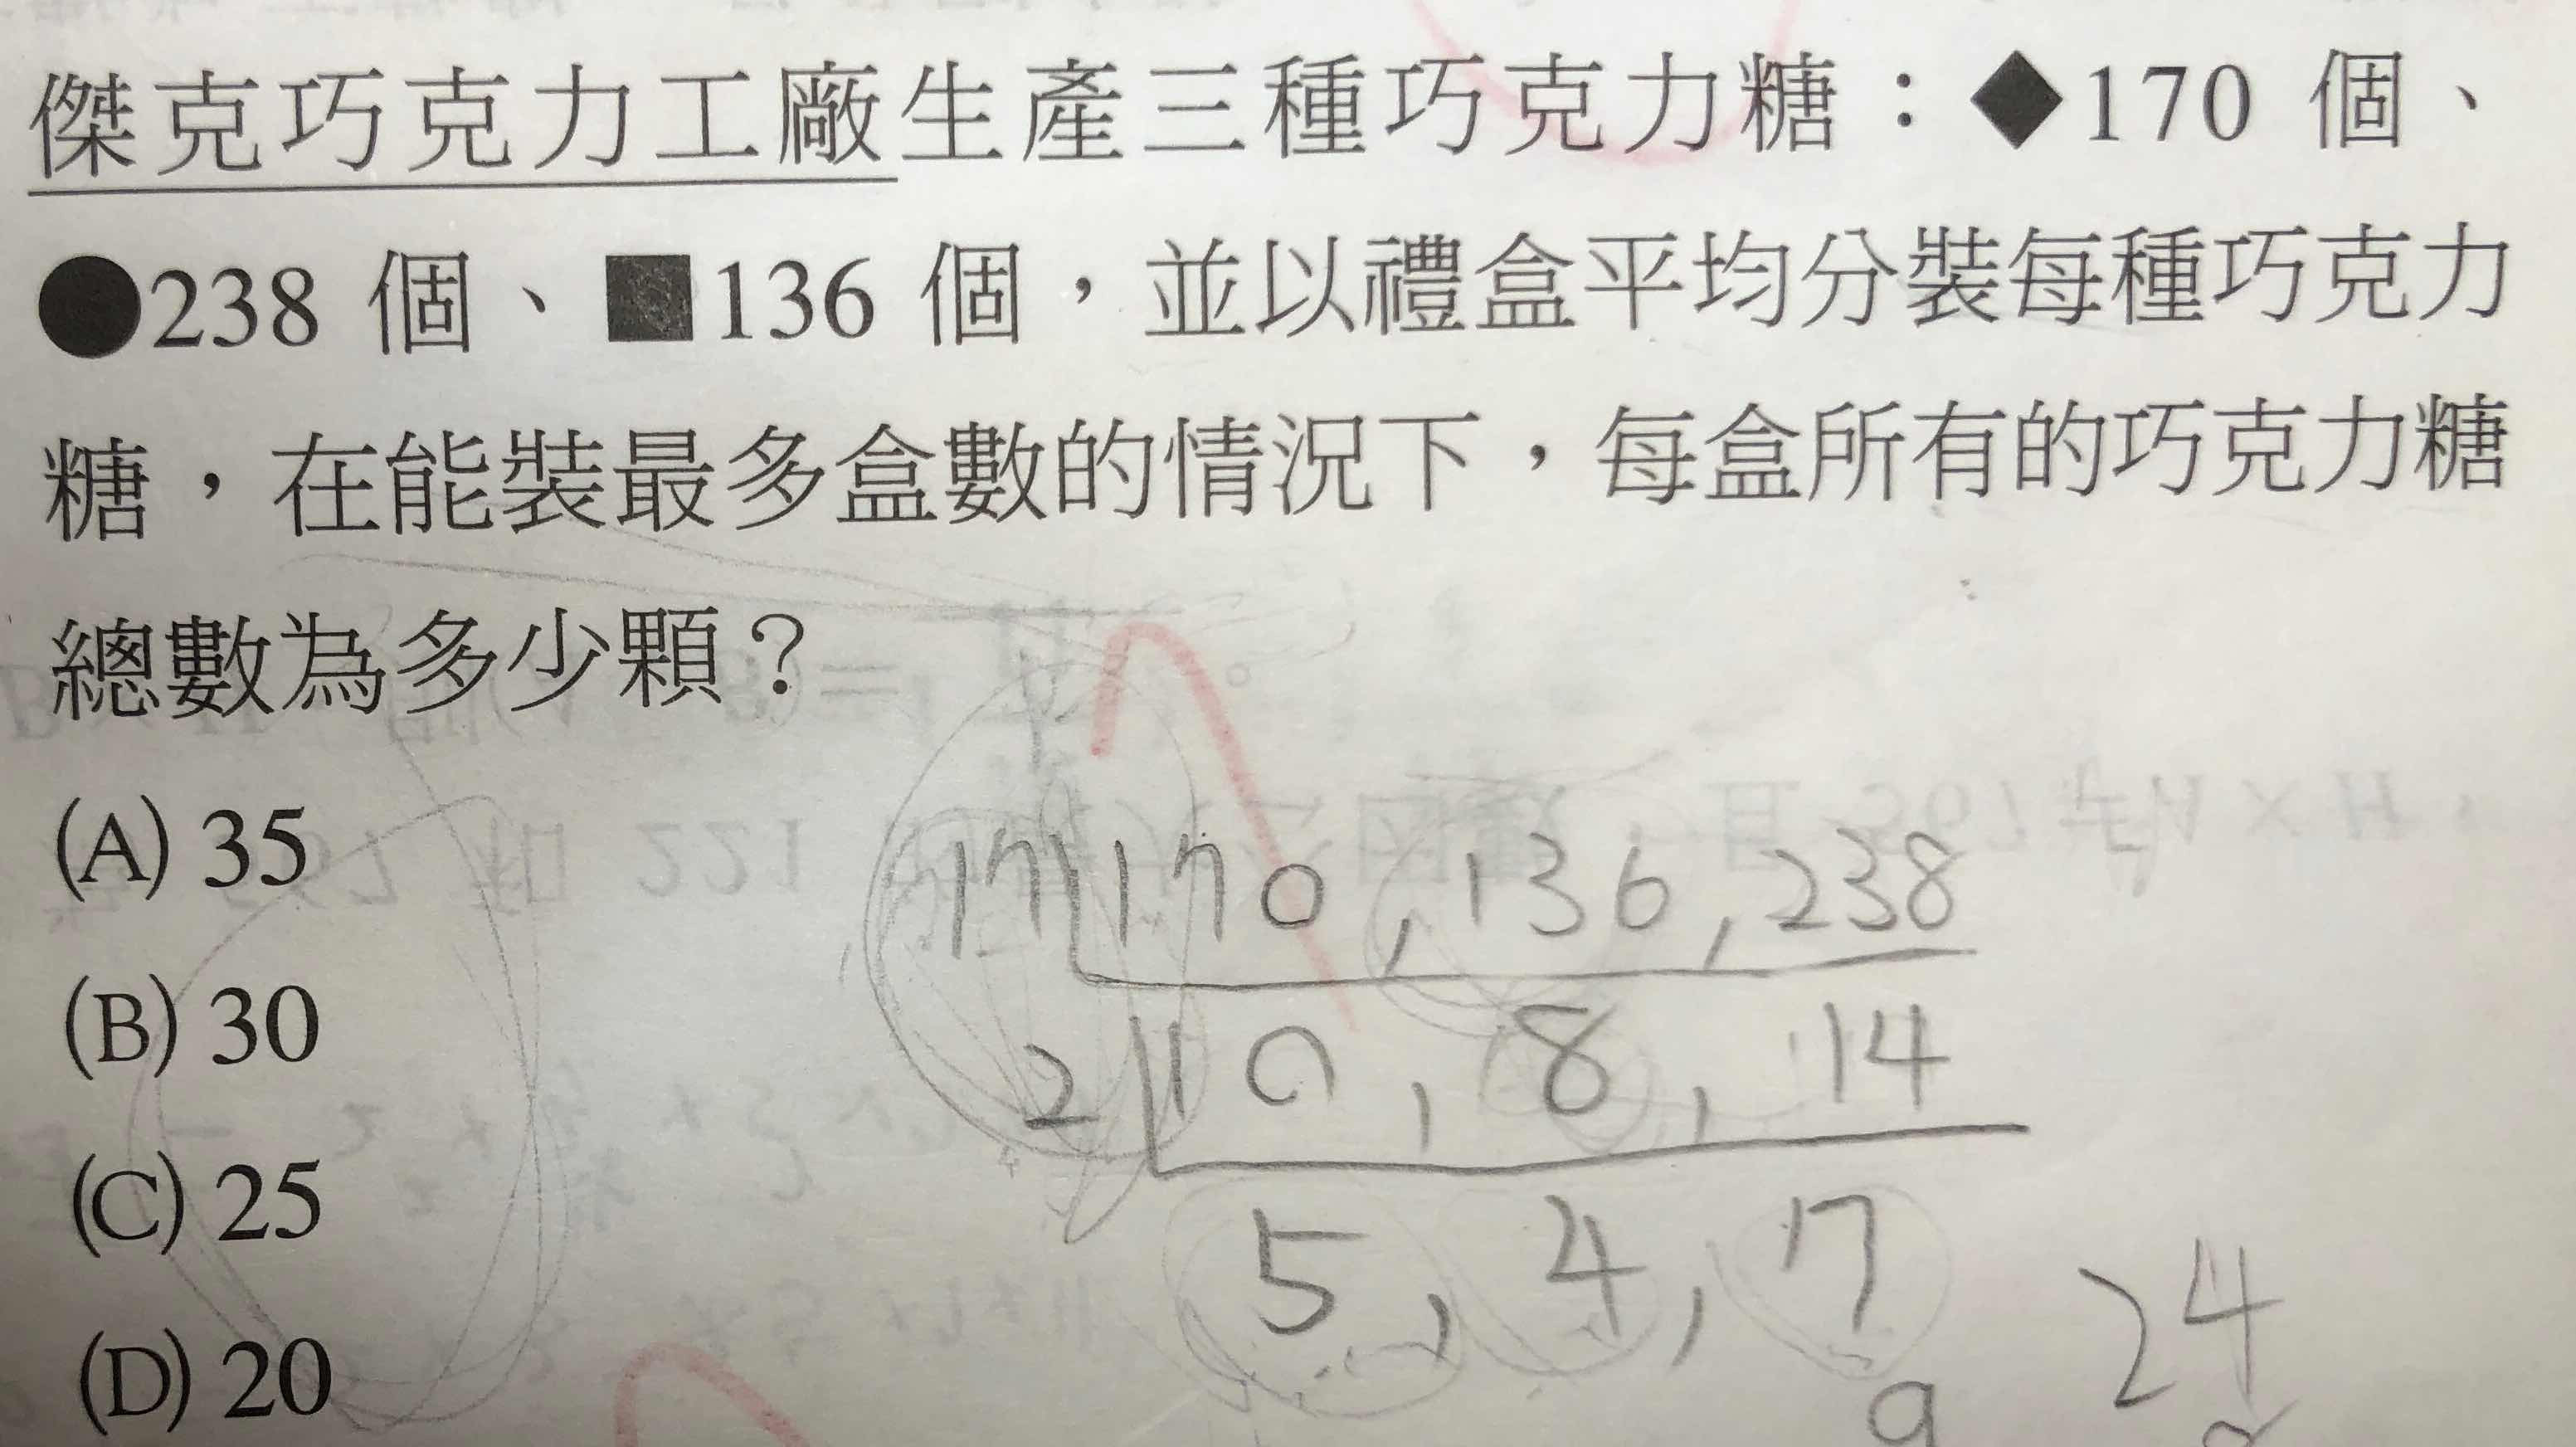 傑克巧克力工廠生產三種巧克力糖：◆170 個、
●238 個、■136 個，並以禮盒平均分裝每種巧克力
糖，在能裝最多盒數的情況下，每盒所有的巧克力糖
總數為多少顆？
(A) 35
(B) 30
(C) 25
(D) 20
17 170 , 136 , 238
2 10 , 8 , 14
5 , 4 , 7
24
9